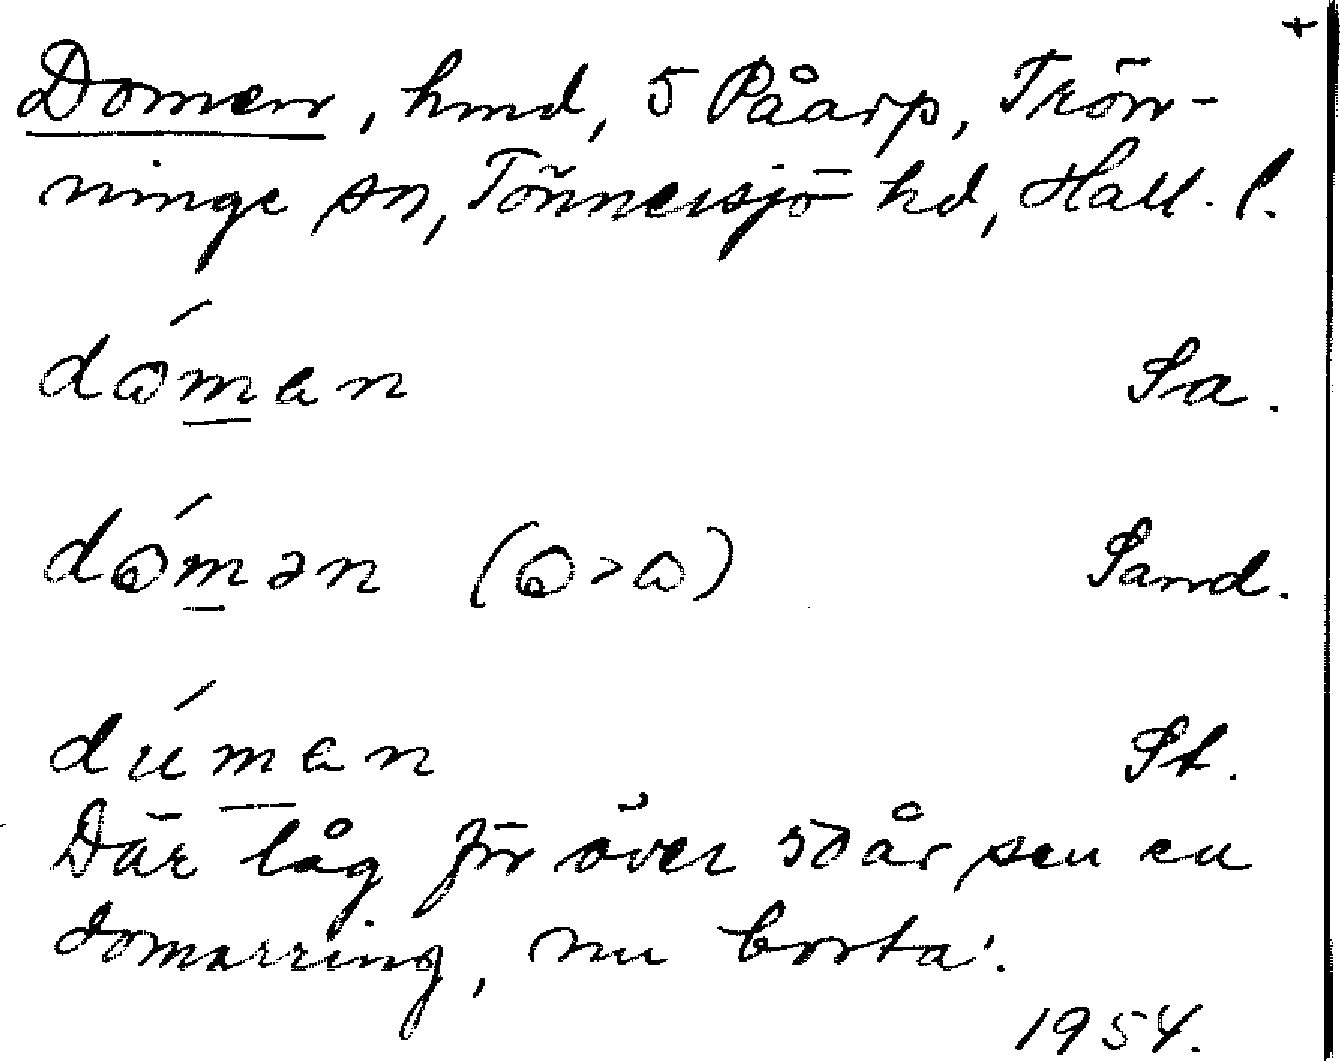 +
Domen, hmd, 5 Påarp, Trön-
ninge sn, Tönnersjö hd, Hall. l.
dɷ́man Sa.
dɷ́mən (ɷ>ɷ) Sand.
dúman St.
Där låg för över 50 år sen en
domarring, nu borta.
1954.